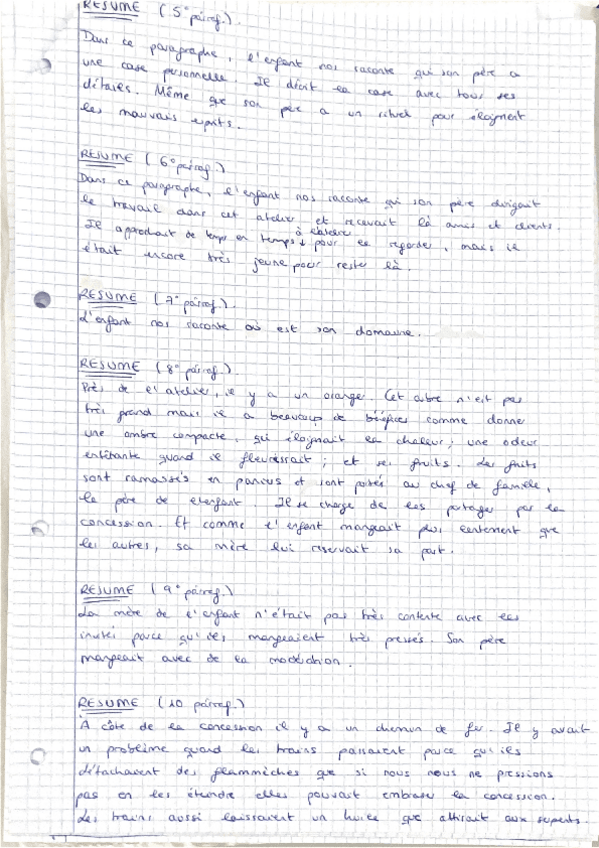 RESUME (5º párraf.).
Dans ce paragraphe, l'enfant nos raconte qui son père a
une case personnelle. Il décrit la case avec tous ses
détailes. Même que son père a un rituel pour éloigment
les mauvais esprits.
RESUME (6º párraf.)
Dans ce paragraphe, l'enfant nos raconte qui son père dirigait
le travail dans cet atelier et recevait là amis et clients.
Il approchait de temps en temps à l'atelier pour le regarder, mais il
était encore très jeune pour rester là.
RESUME (7º párraf.).
L'enfant nos raconte où est son domaine.
RESUME (8º párraf.).
Près de l'atelier, il y a un oranger. Cet arbre n'est pas
très grand mais il a beaucoup de bééfices comme donne
une ombre compacte, qui éloignait la chaleur; une odeur
entêtante quand il fleurissait; et ses fruits. Les fruits
sont ramassés en paniers et sont portés au chef de famille,
le père de l'enfant. Il se charge de les partager par la
concession. Et comme l'enfant mangeait plus lentement que
les autres, sa mère lui reservait sa part.
RESUME (9º párraf.)
La mère de l'enfant n'était pas très contente avec les
invités parce qu'iles mangeaient très pressés. Son père
mangeait avec de la
RESUME (10 párraf.)
À côte de la concession il y a un chemin de fer. Il y avait
un problème quand les trains passaient parce qu'ils
détachavent des flammèches que si nous nous ne pressions
pas on les éteindre elles pouvait embraser la concession.
Les trains aussi laissaient un huile que attirait aux serpents.